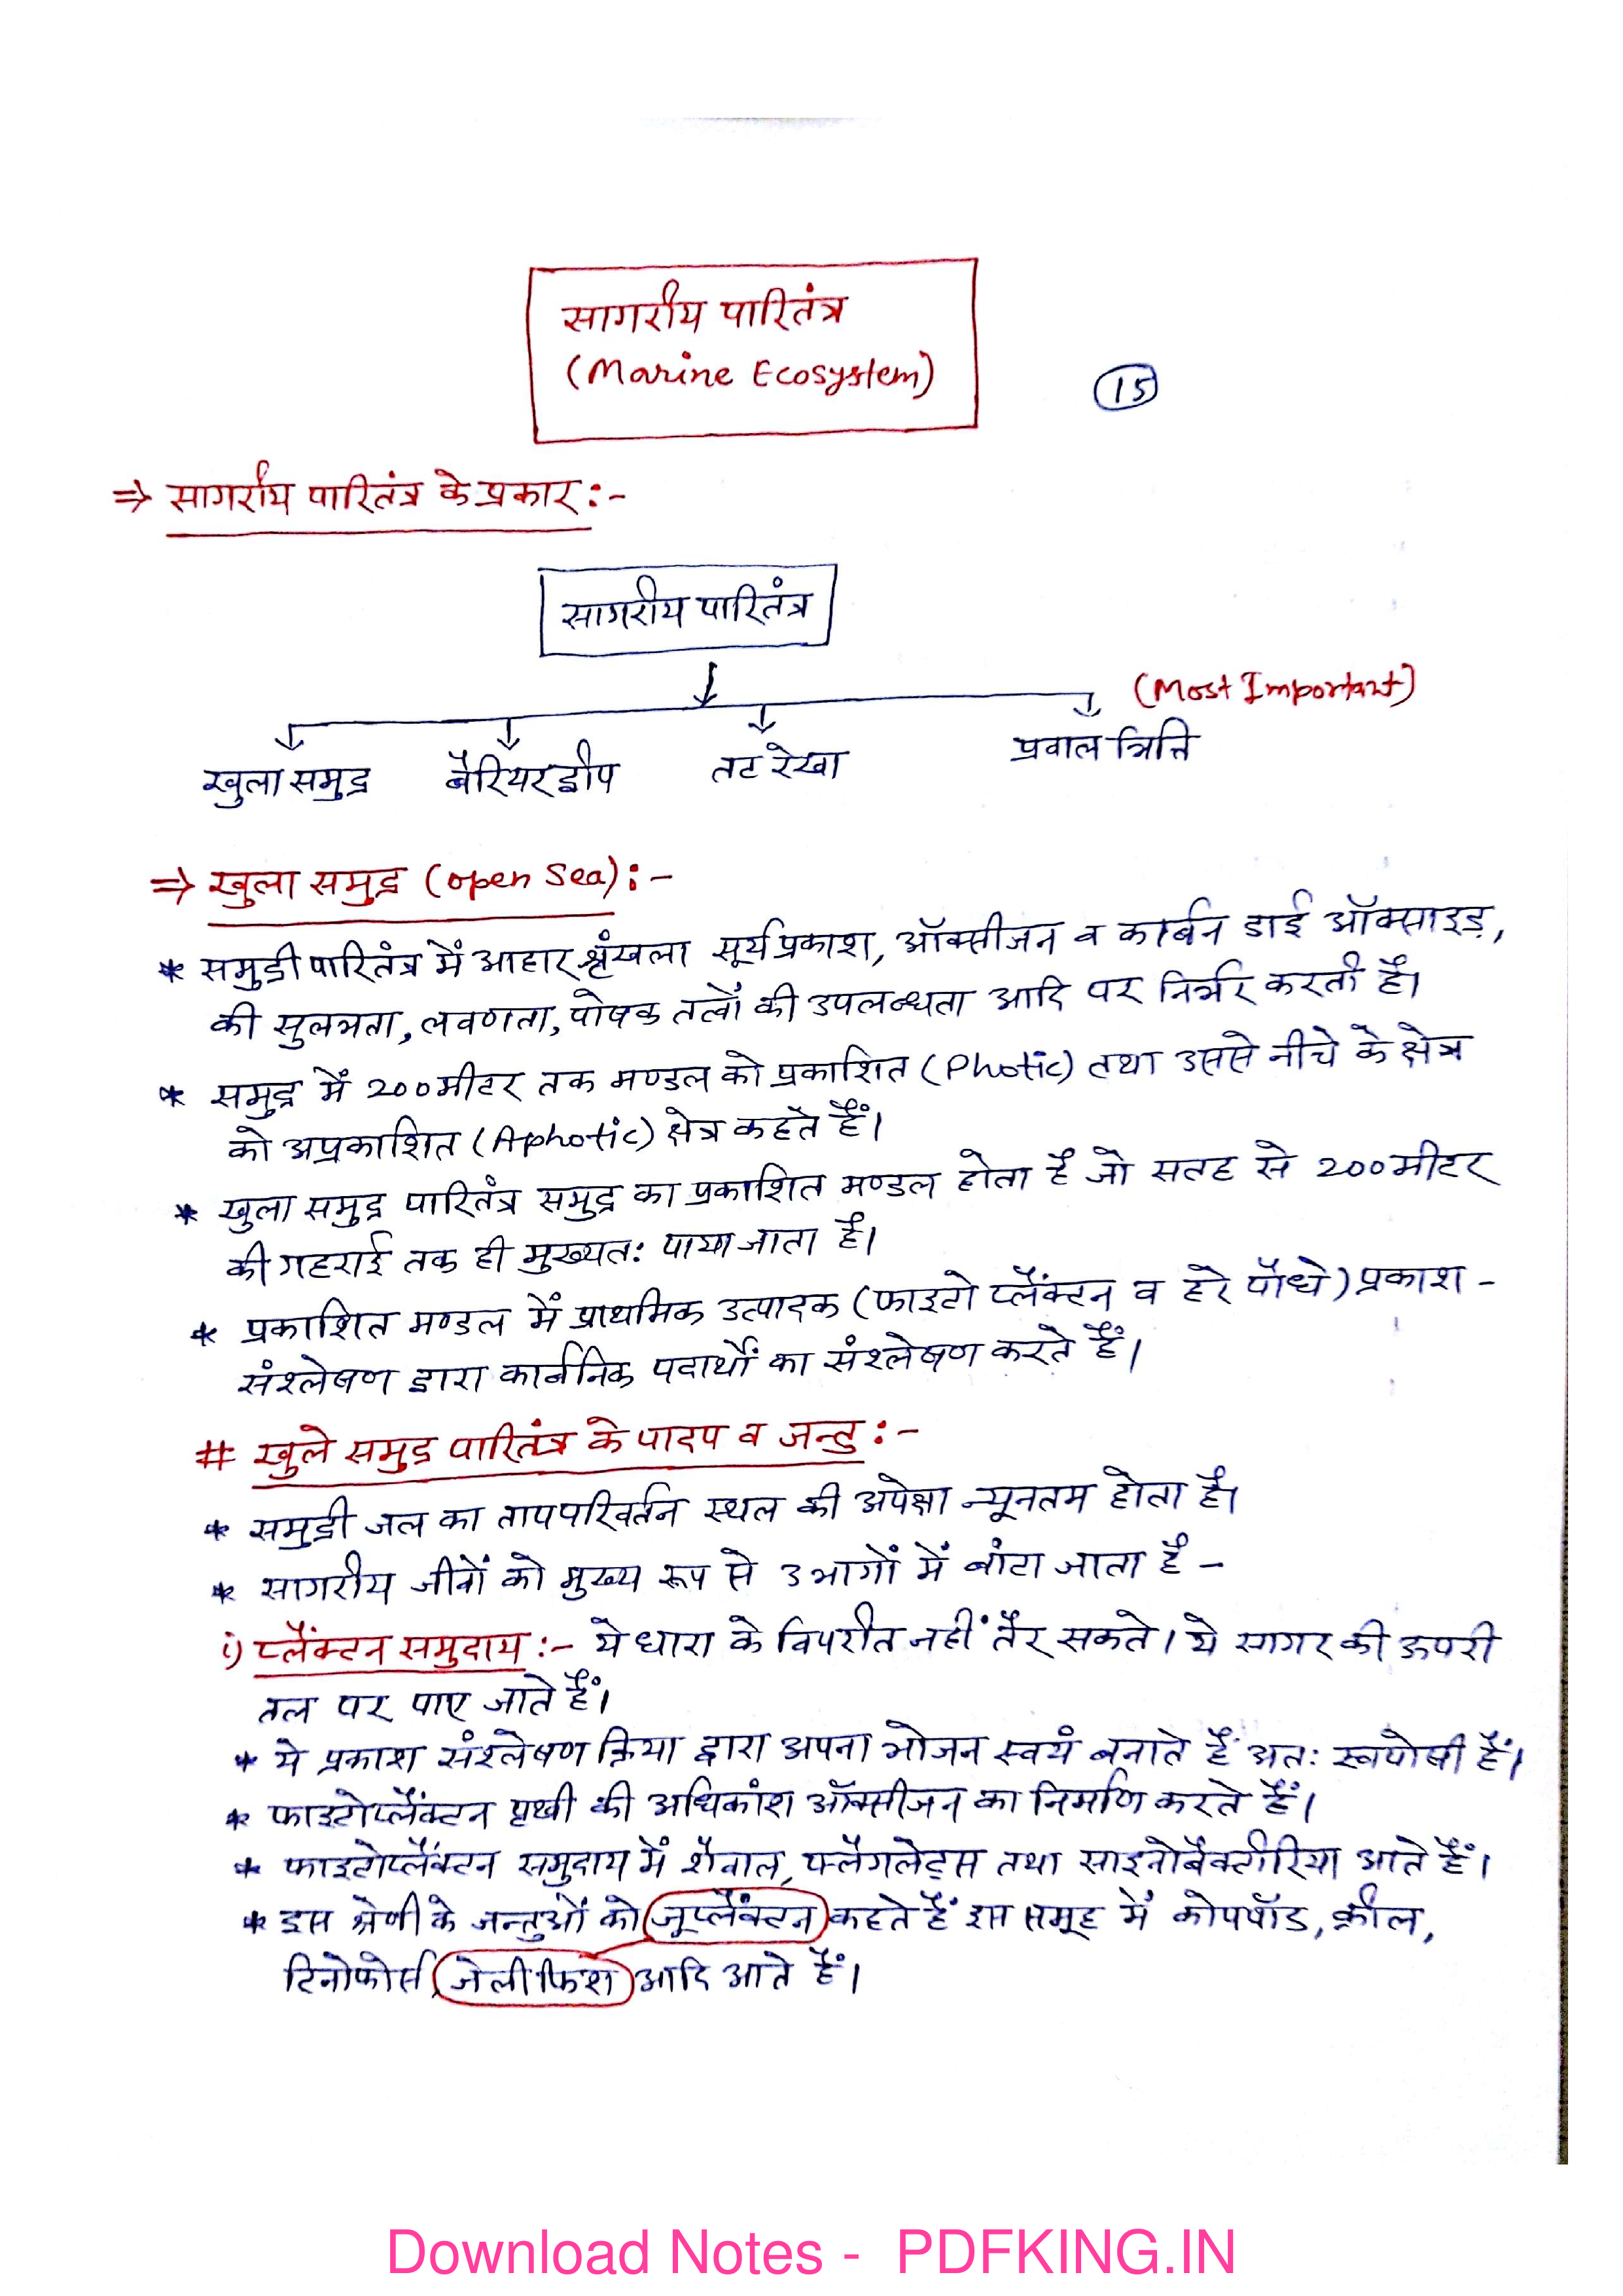 सागरीय पारितंत्र
(Marine Ecosystem)
15
⇒ सागरीय पारितंत्र के प्रकार :-
सागरीय पारितंत्र
(Most Important)
खुला समुद्र बैरियर द्वीप तट रेखा प्रवाल भित्ति
⇒ खुला समुद्र (open Sea) :-
* समुद्री पारितंत्र में आहार श्रृंखला सूर्यप्रकाश, ऑक्सीजन व कार्बन डाई ऑक्साइड,
की सुलभता, लवणता, पोषक तत्वों की उपलब्धता आदि पर निर्भर करती है।
* समुद्र में 200 मीटर तक मण्डल को प्रकाशित (Photic) तथा उससे नीचे के क्षेत्र
को अप्रकाशित (Aphotic) क्षेत्र कहते हैं।
* खुला समुद्र पारितंत्र समुद्र का प्रकाशित मण्डल होता है जो सतह से 200 मीटर
की गहराई तक ही मुख्यतः पाया जाता है।
* प्रकाशित मण्डल में प्राथमिक उत्पादक (फाइटो प्लैंक्टन व हरे पौधे) प्रकाश -
संश्लेषण द्वारा कार्बनिक पदार्थों का संश्लेषण करते हैं।
# खुले समुद्र पारितंत्र के पादप व जन्तु :-
* समुद्री जल का तापपरिवर्तन स्थल की अपेक्षा न्यूनतम होता है।
* सागरीय जीवों को मुख्य रूप से 3 भागों में बांटा जाता है -
i) प्लैंक्टन समुदाय :- ये धारा के विपरीत नहीं तैर सकते। ये सागर की ऊपरी
तल पर पाए जाते हैं।
* ये प्रकाश संश्लेषण क्रिया द्वारा अपना भोजन स्वयं बनाते हैं अतः स्वपोषी हैं।
* फाइटोप्लैंक्टन पृथ्वी की अधिकांश ऑक्सीजन का निर्माण करते हैं।
* फाइटोप्लैंक्टन समुदाय में शैवाल, फ्लैगलेट्स तथा साइनोबैक्टीरिया आते हैं।
* इस श्रेणी के जन्तुओं को जूप्लैंक्टन कहते हैं इस समूह में कोपपॉड, क्रील,
टिनोफोर्स, जेलीफिश आदि आते हैं।
Download Notes - PDFKING.IN